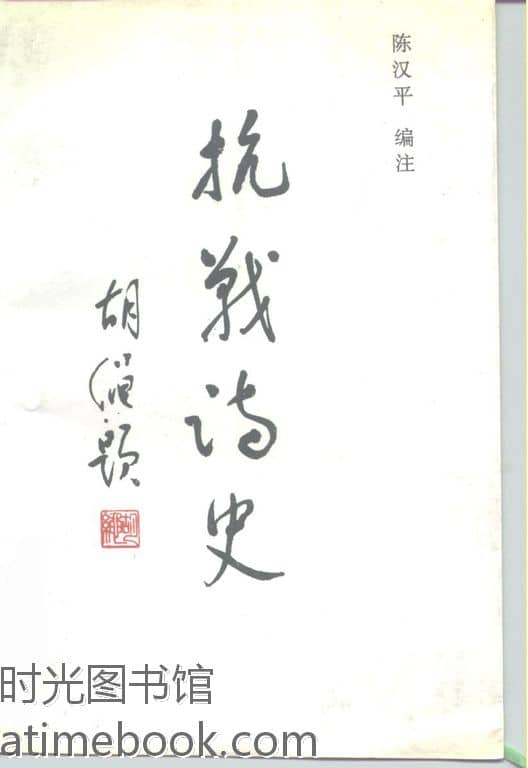 陈汉平 编注
抗战诗史
胡绳题
时光图书馆
atimebook.com